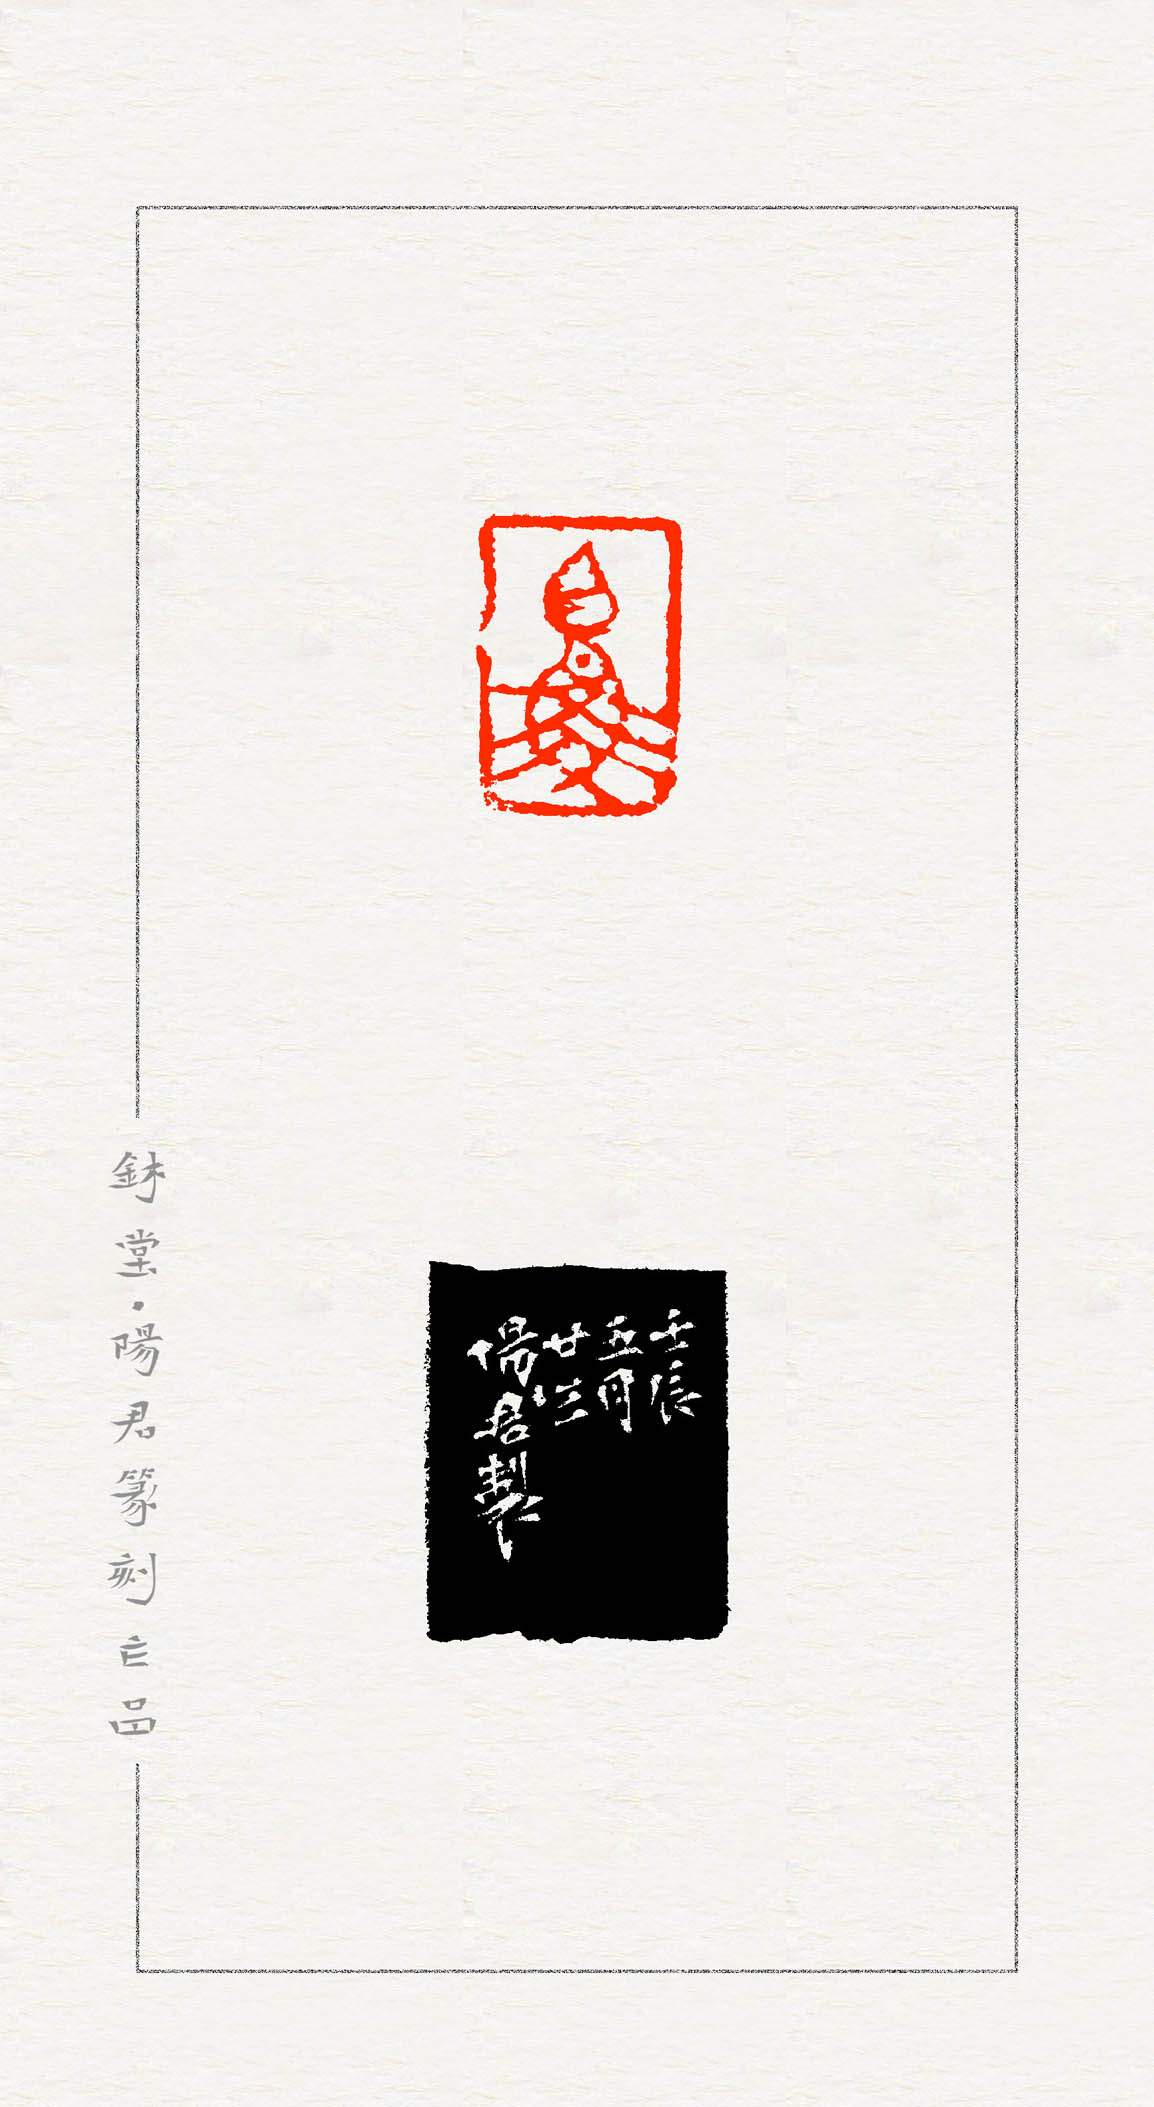 壬辰
五月
廿三
陽君製
鉢堂·陽君篆刻亡品